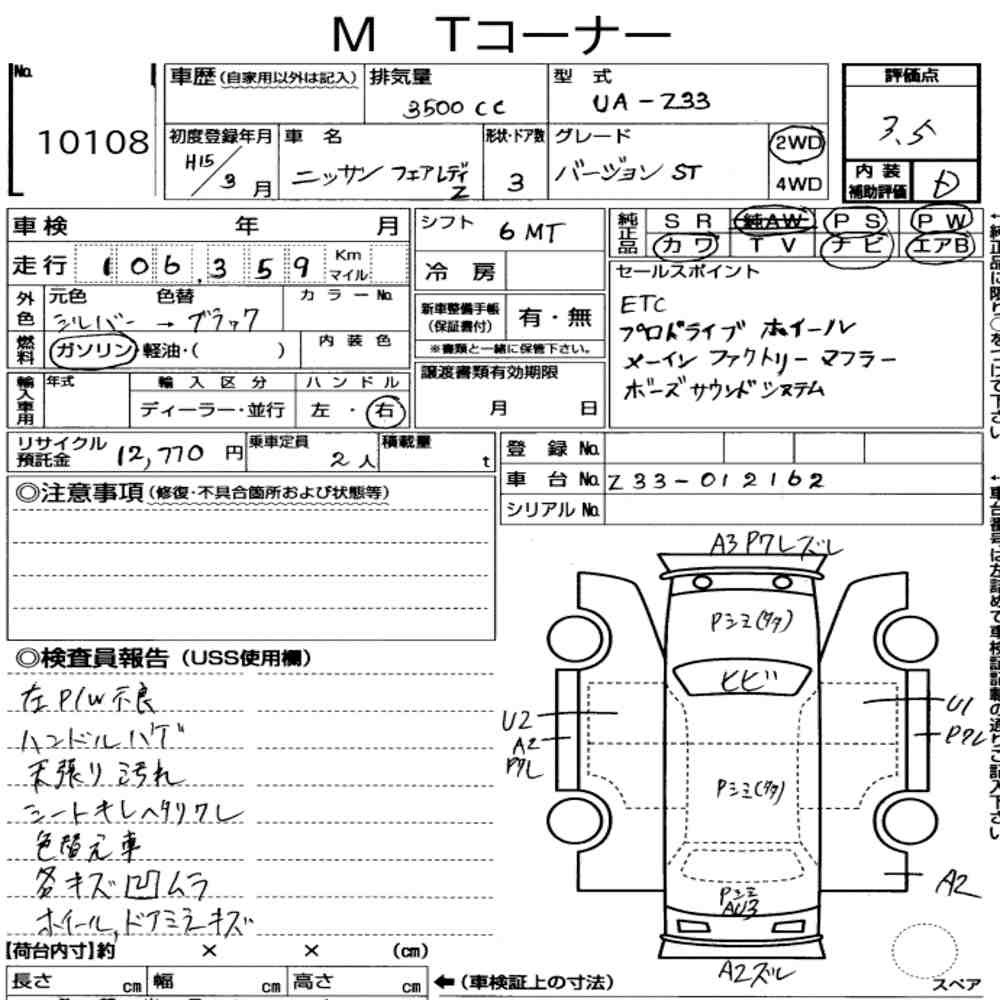 M Tコーナー
No.
10108
車歴(自家用以外は記入)
排気量
3500 CC
型式
UA-Z33
評価点
3.5
初度登録年月
H15/3月
車名
ニッサン フェアレディZ
形状・ドア数
3
グレード
バージョン ST
2WD
4WD
内装補助評価
D
車検 年 月
シフト
6 MT
純正品
SR 純AW PS PW
カワ TV ナビ エアB
走行 106,359 Km マイル
冷房
セールスポイント
ETC
プロドライブ ホイール
メーイン ファクトリー マフラー
ボーズ サウンドシステム
外色
元色 色替
シルバー → ブラック
カラーNo.
新車整備手帳(保証書付)
有・無
※書類と一緒に保管下さい。
燃料
ガソリン・軽油・( )
内装色
輸入車用
年式
輸入区分
ディーラー・並行
ハンドル
左・右
譲渡書類有効期限
月 日
リサイクル預託金 12,770 円
乗車定員
2人
積載量
t
登録No.
車台No. Z33-012162
シリアルNo.
◎注意事項(修復・不具合箇所および状態等)
◎検査員報告(USS使用欄)
左P/W不良
ハンドルハゲ
天張り汚れ
シートキレヘタリワレ
色替え車
各キズ凹ムラ
ホイール,ドアミラーキズ
A3 Pワレズレ
Pシミ(タタ)
ヒビ
U2
A2
Pワレ
U1
Pワレ
Pシミ(タタ)
A2
Pシミ
AU3
A2ズレ
スペア
【荷台内寸】約 × × (cm)
長さ cm 幅 cm 高さ cm
←(車検証上の寸法)